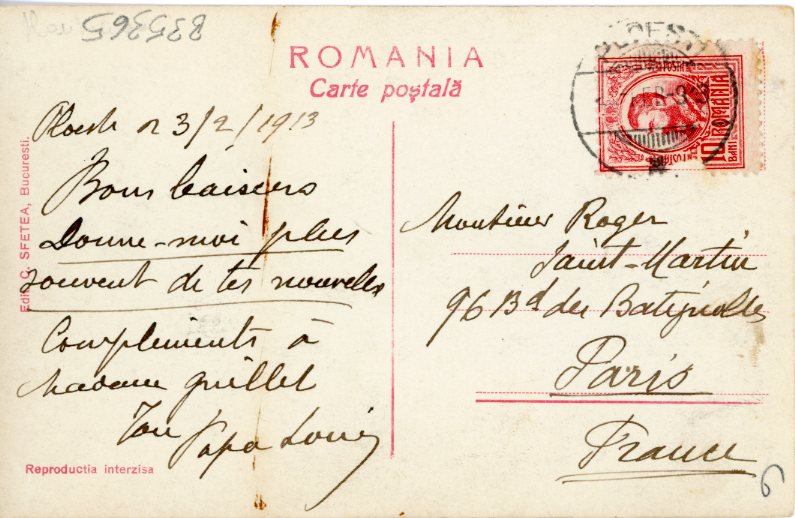 B35365
ROMANIA
Carte poștală
BUCUREȘTI
10 ROMANIA
BANI
3/2/1913
Bons baisers
Donne-moi plus
souvent de tes nouvelles
Compliments à
Madame Guillet
Ton Papa Louis
Monsieur Roger
Saint-Martin
96 Bd des Batignolles
Paris
France
Edit. C. SFETEA, Bucuresti.
Reproductia interzisa
6